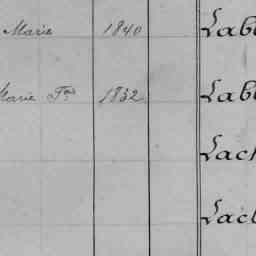 Marie 1840 Lab
Marie Fse 1832 Lab
Lach
Lach